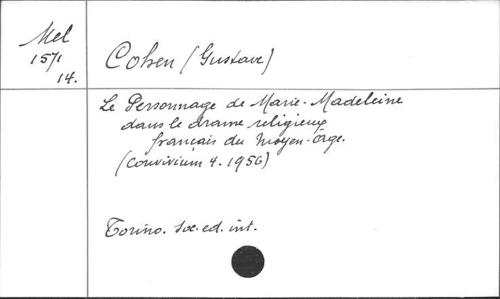 Mel
1571
14.
Cohen (Gustave)
Le Personnage de Marie-Madeleine
dans le drame religieux
français du Moyen-Âge.
(Convivium 4. 1956)
Torino. Soc. ed. int.